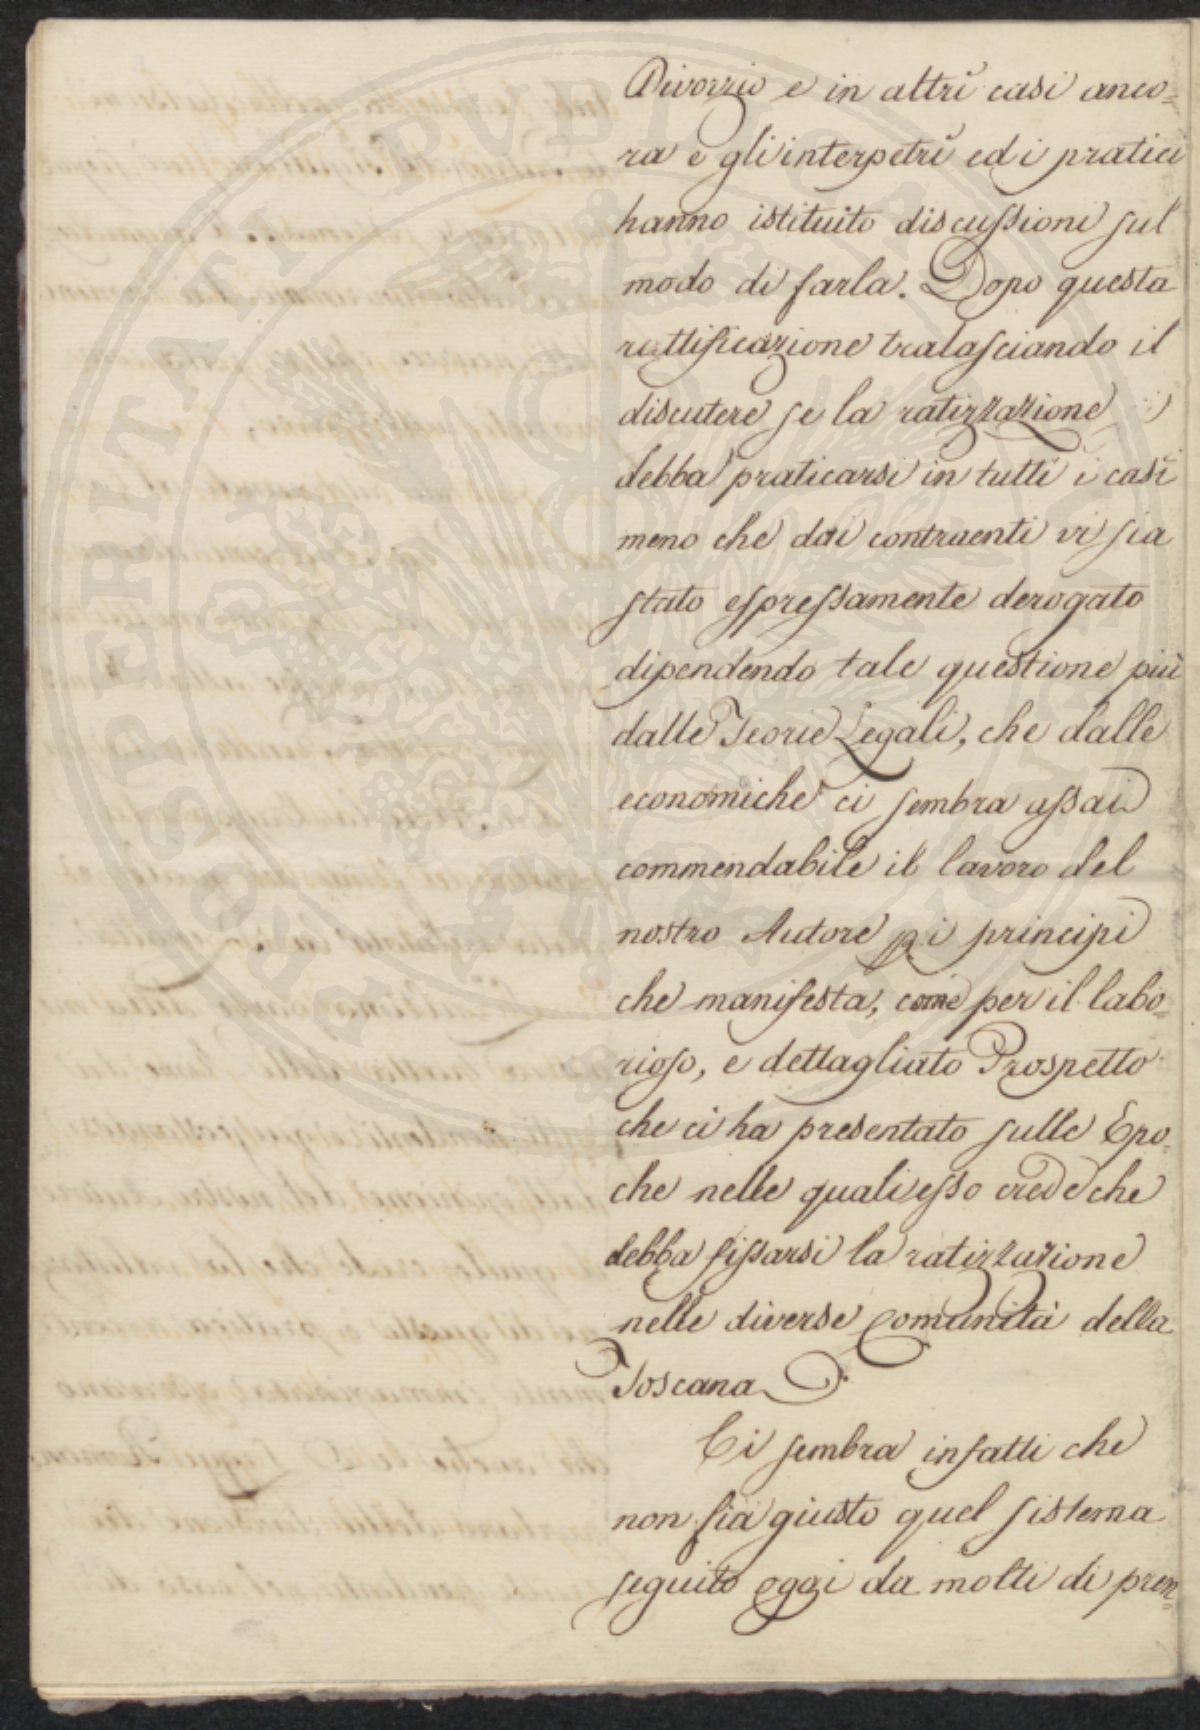 Divorzio e in altri casi anco=
ra e gli interpetri ed i pratici
hanno istituito discussioni sul
modo di farla. Dopo questa
rettificazione tralasciando il
discutere se la ratizzazione
debba praticarsi in tutti i casi
meno che dai contraenti vi sia
stato espressamente derogato
dipendendo tale questione più
dalle Teorie Legali, che dalle
economiche ci sembra assai
commendabile il lavoro del
nostro Autore p i principi
che manifesta, come per il labo=
rioso, e dettagliato Prospetto
che ci ha presentato sulle Epo=
che nelle quali esso crede che
debba fissarsi la ratizzazione
nelle diverse Comunità della
Toscana.
Ci sembra infatti che
non sia giusto quel sistema
seguito oggi da molti di pren=
PROSPERITATI PUBLICAE